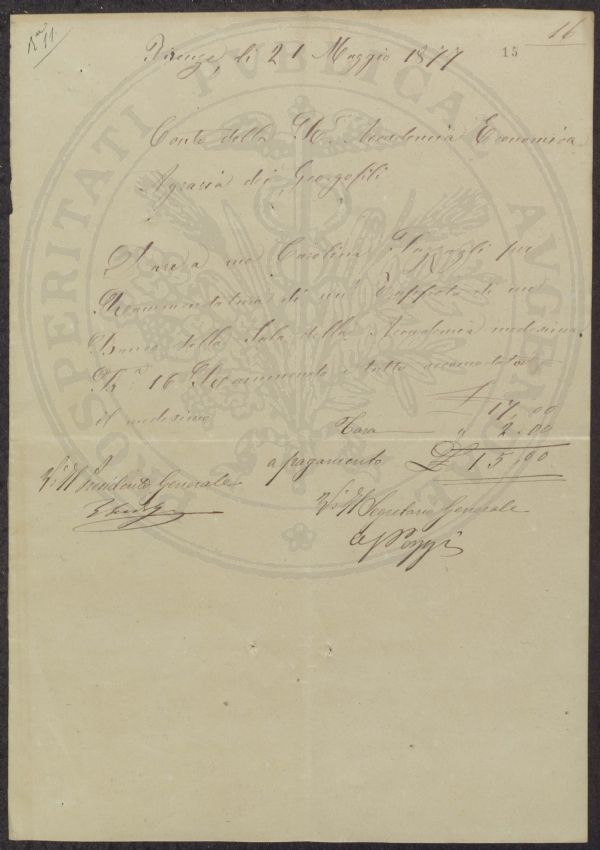 Nº 11
16
15
Firenze, di 21 Maggio 1877
Conto della R. Accademia Economica
Agraria dei Georgofili
Dare a me Carolina per
Raccomodatura di un Tappeto di un
Banco della Sala della Accademia medesima
16 e tutto accomodato
il medesimo £ 17,00
Tara " 2.00
a pagamento £ 15,00
Vº Il Presidente Generale
Vº Il Segretario Generale
PROSPERITATI PVBLICAE AVGENDAE